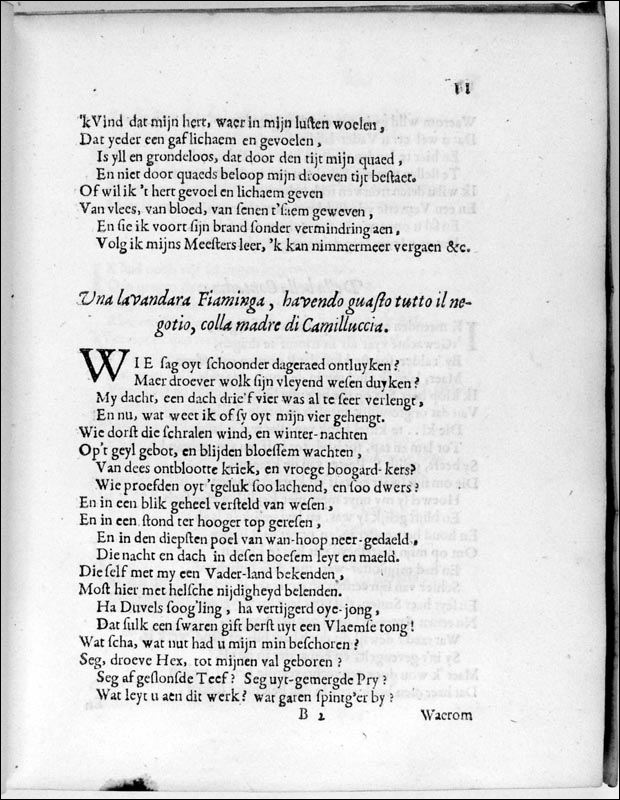 11
'kVind dat mijn hert, waer in mijn lusten woelen,
Dat yeder een gaf lichaem en gevoelen,
Is yll en grondeloos, dat door den tijt mijn quaed,
En niet door quaeds beloop mijn droeven tijt bestaet.
Of wil ik 't hert gevoel en lichaem geven
Van vlees, van bloed, van senen t'saem geweven,
En sie ik voort sijn brand sonder vermindring aen,
Volg ik mijns Meesters leer, 'k kan nimmermeer vergaen &c.
Una lavandara Fiaminga, havendo guasto tutto il ne-
gotio, colla madre di Camilluccia.
WIE sag oyt schoonder dageraed ontluyken?
Maer droever wolk sijn vleyend wesen duyken?
My dacht, een dach drie'f vier was al te seer verlengt,
En nu, wat weet ik of sy oyt mijn vier gehengt.
Wie dorst die schralen wind, en winter-nachten
Op't geyl gebot, en blijden bloessem wachten,
Van dees ontblootte kriek, en vroege boogard-kers?
Wie proefden oyt 'tgeluk soo lachend, en soo dwers?
En in een blik geheel versteld van wesen,
En in een stond ter hooger top geresen,
En in den diepsten poel van wan-hoop neer-gedaeld,
Die nacht en dach in desen boesem leyt en maeld.
Die self met my een Vader-land bekenden,
Most hier met helsche nijdigheyd belenden.
Ha Duvels soog'ling, ha vertijgerd oye-jong,
Dat sulk een swaren gift berst uyt een Vlaemse tong!
Wat scha, wat nut had u mijn min beschoren?
Seg, droeve Hex, tot mijnen val geboren?
Seg afgeslonsde Teef? Seg uyt-gemergde Pry?
Wat leyt u aen dit werk? wat garen spintg'er by?
B 2 Waerom